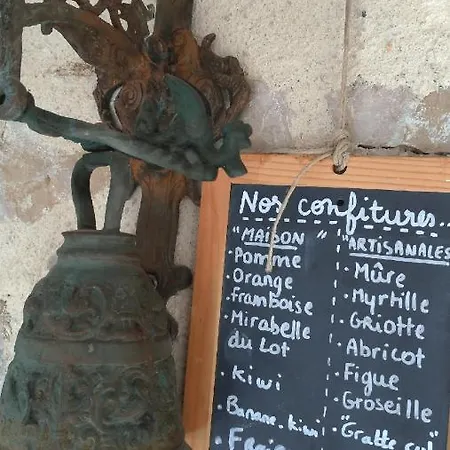 Nos confitures..
"MAISON"
· Pomme
· Orange
· framboise
· Mirabelle
du Lot
· Kiwi
· Banane. kiwi
"ARTISANALES
· Mûre
· Myrtille
· Griotte
· Abricot
· Figue
· Groseille
· "Gratte cul